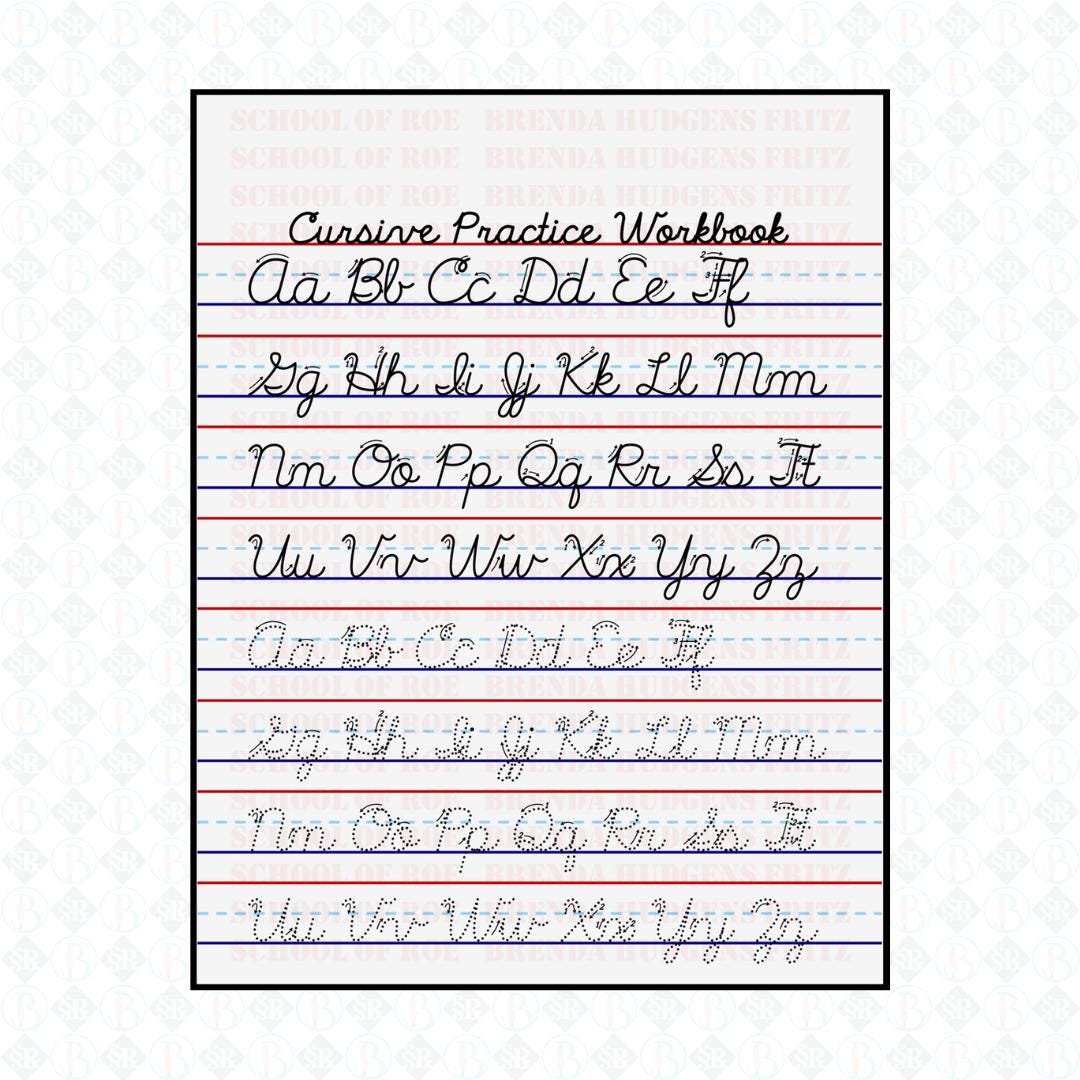 SCHOOL OF ROE BRENDA HUDGENS FRITZ
SCHOOL OF ROE BRENDA HUDGENS FRITZ
SCHOOL OF ROE BRENDA HUDGENS FRITZ
Cursive Practice Workbook
Aa Bb Cc Dd Ee Ff
Gg Hh Ii Jj Kk Ll Mm
Nn Oo Pp Qq Rr Ss Tt
Uu Vv Ww Xx Yy Zz
Aa Bb Cc Dd Ee Ff
Gg Hh Ii Jj Kk Ll Mm
Nn Oo Pp Qq Rr Ss Tt
Uu Vv Ww Xx Yy Zz